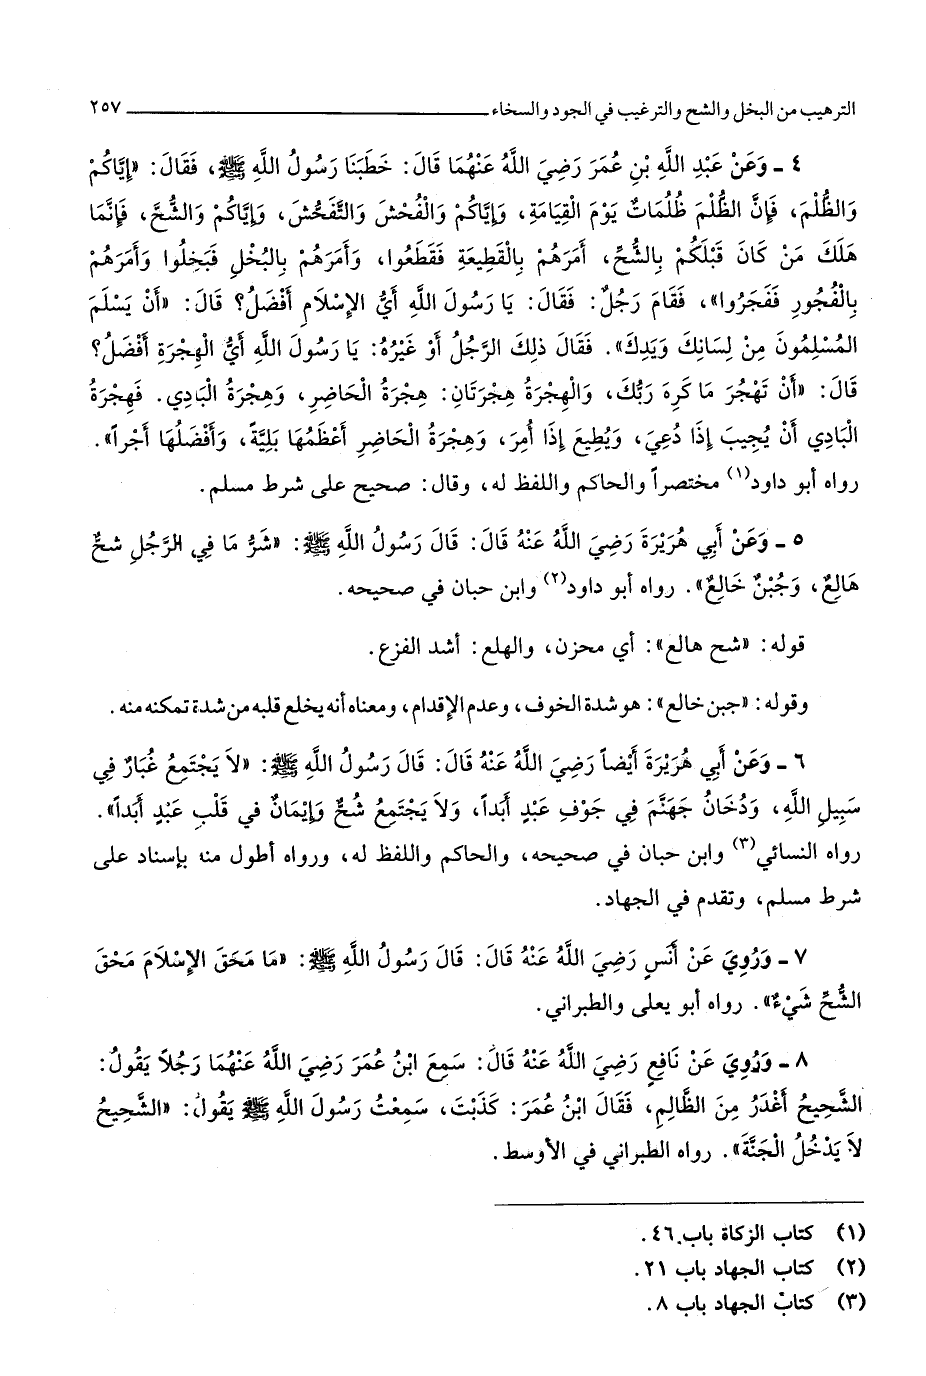 الترهيب من البخل والشح والترغيب في الجود والسخاء ٢٥٧
٤ ـ وَعَنْ عَبْدِ اللَّهِ بْنِ عُمَرَ رَضِيَ اللَّهُ عَنْهُمَا قَالَ: خَطَبَنَا رَسُولُ اللَّهِ ﷺ، فَقَالَ: «إِيَّاكُمْ
وَالظُّلْمَ، فَإِنَّ الظُّلْمَ ظُلُمَاتٌ يَوْمَ الْقِيَامَةِ، وَإِيَّاكُمْ وَالْفُحْشَ وَالتَّفَحُّشَ، وَإِيَّاكُمْ وَالشُّحَّ، فَإِنَّمَا
هَلَكَ مَنْ كَانَ قَبْلَكُمْ بِالشُّحِّ، أَمَرَهُمْ بِالْقَطِيعَةِ فَقَطَعُوا، وَأَمَرَهُمْ بِالبُخْلِ فَبَخِلُوا وَأَمَرَهُمْ
بِالْفُجُورِ فَفَجَرُوا»، فَقَامَ رَجُلٌ: فَقَالَ: يَا رَسُولَ اللَّهِ أَيُّ الإِسْلَامِ أَفْضَلُ؟ قَالَ: «أَنْ يَسْلَمَ
المُسْلِمُونَ مِنْ لِسَانِكَ وَيَدِكَ». فَقَالَ ذلِكَ الرَّجُلُ أَوْ غَيْرُهُ: يَا رَسُولَ اللَّهِ أَيُّ الْهِجْرَةِ أَفْضَلُ؟
قَالَ: «أَنْ تَهْجُرَ مَا كَرِهَ رَبُّكَ، وَالْهِجْرَةُ هِجْرَتَانِ: هِجْرَةُ الْحَاضِرِ، وَهِجْرَةُ الْبَادِي. فَهِجْرَةُ
الْبَادِي أَنْ يُجِيبَ إِذَا دُعِيَ، وَيُطِيعَ إِذَا أُمِرَ، وَهِجْرَةُ الْحَاضِرِ أَعْظَمُهَا بَلِيَّةً، وَأَفْضَلُهَا أَجْراً».
رواه أبو داود(١) مختصراً والحاكم واللفظ له، وقال: صحيح على شرط مسلم.
٥ ـ وَعَنْ أَبِي هُرَيْرَةَ رَضِيَ اللَّهُ عَنْهُ قَالَ: قَالَ رَسُولُ اللَّهِ ﷺ: «شَرُّ مَا فِي الرَّجُلِ شحٌّ
هَالِعٌ، وَجُبْنٌ خَالِعٌ». رواه أبو داود(٢) وابن حبان في صحيحه.
قوله: «شح هالع»: أي محزن، والهلع: أشد الفزع.
وقوله: «جبن خالع»: هو شدة الخوف، وعدم الإقدام، ومعناه أنه يخلع قلبه من شدة تمكنه منه.
٦ ـ وَعَنْ أَبِي هُرَيْرَةَ أَيْضاً رَضِيَ اللَّهُ عَنْهُ قَالَ: قَالَ رَسُولُ اللَّهِ ﷺ: «لاَ يَجْتَمِعُ غُبَارٌ فِي
سَبِيلِ اللَّهِ، وَدُخَانُ جَهَنَّمَ فِي جَوْفِ عَبْدٍ أَبَداً، وَلاَ يَجْتَمِعُ شُحٌّ وَإِيْمَانٌ في قَلْبِ عَبْدٍ أَبَداً».
رواه النسائي(٣) وابن حبان في صحيحه، والحاكم واللفظ له، ورواه أطول منه بإسناد على
شرط مسلم، وتقدم في الجهاد.
٧ ـ وَرُوِيَ عَنْ أَنَسٍ رَضِيَ اللَّهُ عَنْهُ قَالَ: قَالَ رَسُولُ اللَّهِ ﷺ: «مَا مَحَقَ الإِسْلَامَ مَحْقَ
الشُّحِّ شَيْءٌ». رواه أبو يعلى والطبراني.
٨ ـ وَرُوِيَ عَنْ نَافِعٍ رَضِيَ اللَّهُ عَنْهُ قَالَ: سَمِعَ ابْنُ عُمَرَ رَضِيَ اللَّهُ عَنْهُمَا رَجُلاً يَقُولُ:
الشَّحِيحُ أَغْدَرُ مِنَ الظَّالِمِ، فَقَالَ ابْنُ عُمَرَ: كَذَبْتَ، سَمِعْتُ رَسُولَ اللَّهِ ﷺ يَقُولُ: «الشَّحِيحُ
لاَ يَدْخُلُ الْجَنَّةَ». رواه الطبراني في الأوسط.
(١) كتاب الزكاة باب ٤٦.
(٢) كتاب الجهاد باب ٢١.
(٣) كتاب الجهاد باب ٨.